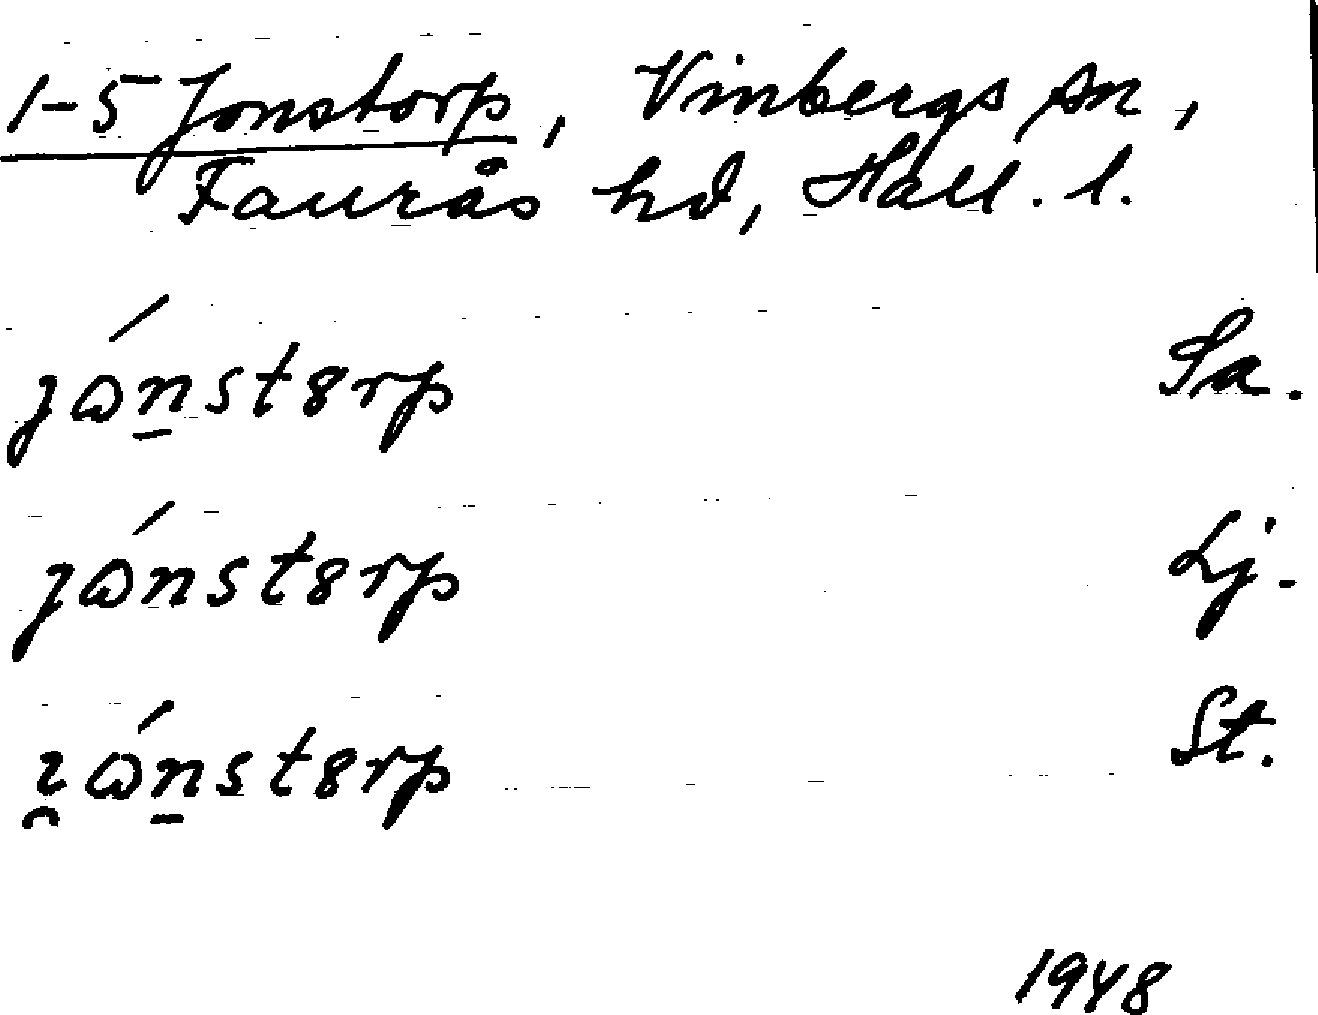 1-5 Jonstorp, Vinbergs sn,
Faurås hd, Hall. l.
jώn̠st8rp Sa.
jώnst8rp Lj.
ı̯ώn̠st8rp St.
1948